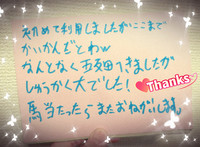 初めて利用しましたがここまで
かいかんだとわw
なんとなく
きましたが
しゅうかく大でした!
Thanks
またおねがいします。